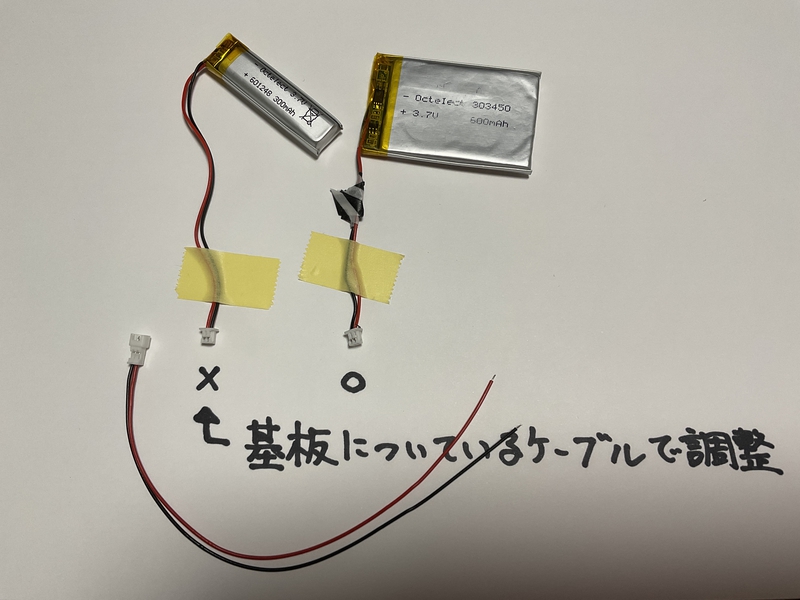 - OcteTect 3.7V
+ 601248 300mAh
- OcteTect 303450
+ 3.7V 600mAh
X O
基板についているケーブルで調整